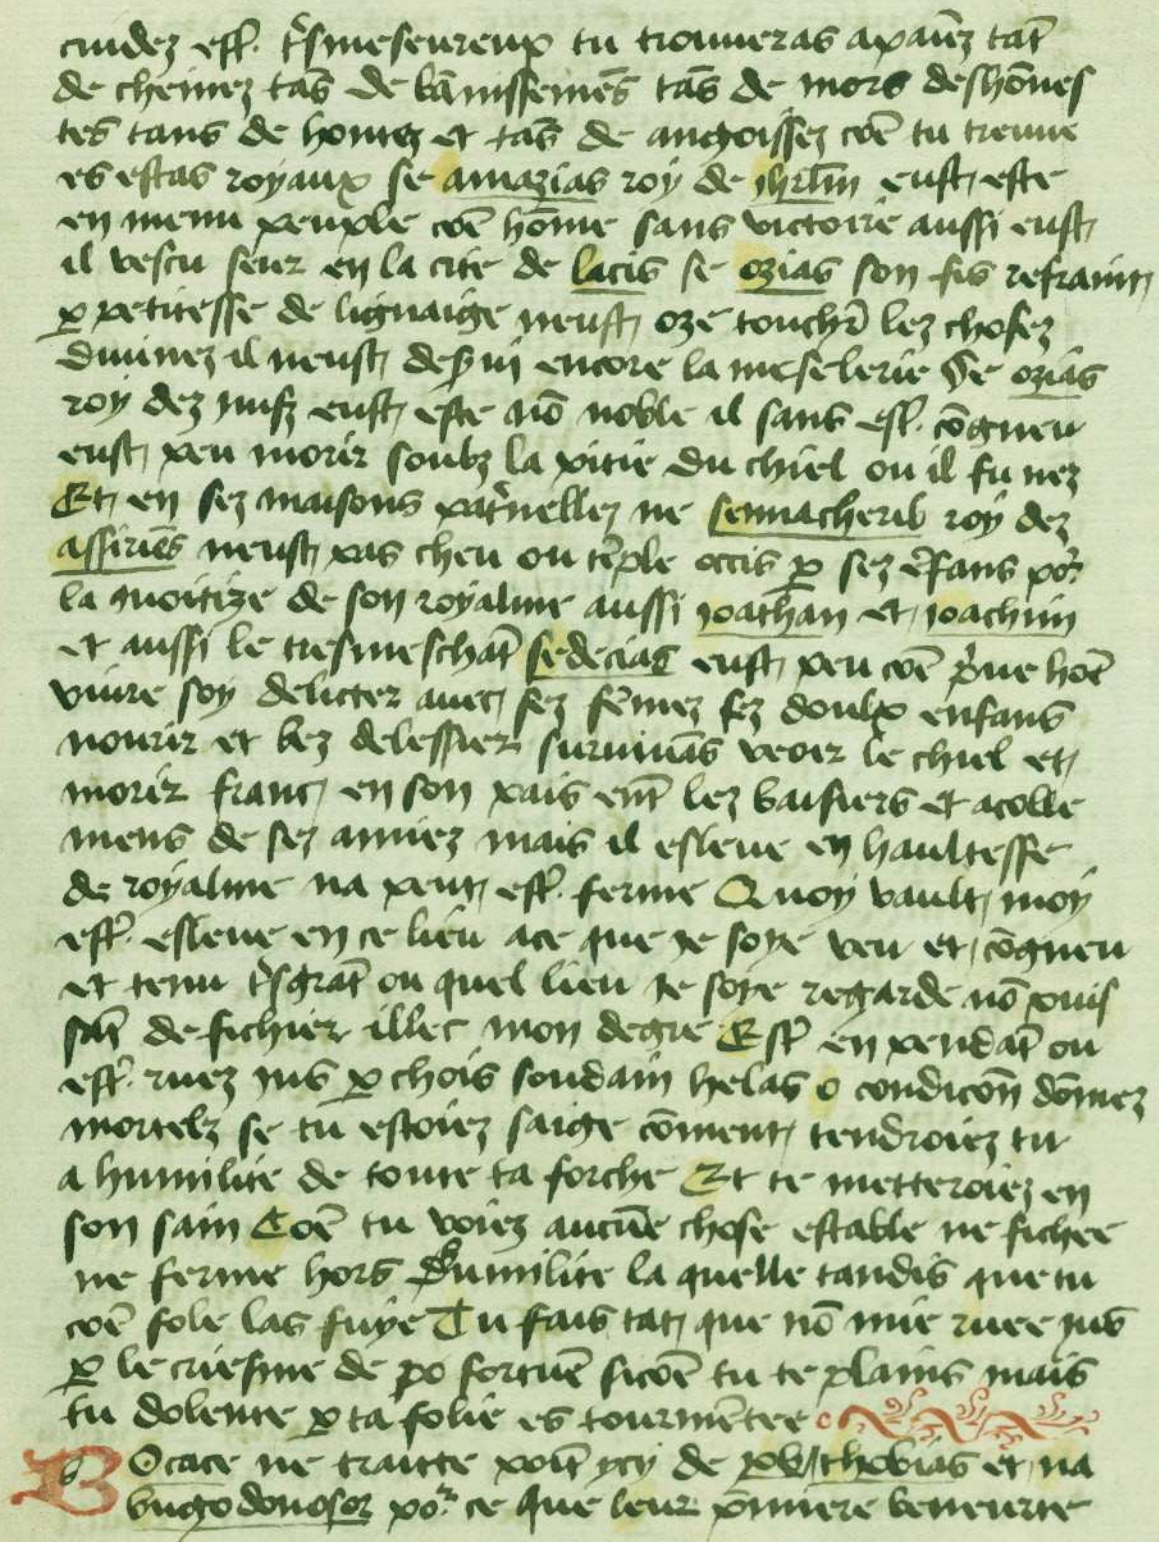 cuidez estˀ. tˢmeseureux tu trouueras apaiēz tāt
de cheinez tās de bānissemēs tās de mors deshōnes
tes tans de hontez et tās de angoissez cōe tu treuue
es estas royaux se amazias roy de ihrl̄m eust este
en menu peuple cōe hōme sans victoire aussi eust
il vescu seur en la cite de lacis se ozias son fis refraint
ꝑ petitesse de lignaige neust oze touchr̄ lez chosez
diuinez il neust desẜui encore la meselerie Se ozias
roy dez iuifz eust este nō noble il sans estˀ. cōgneu
eust peu morir soubz la pitie du chiel ou il fu nez
Et en sez maisons patˀnellez ne sennacherib roy dez
assiriēs neust pas cheu ou tēple occis ꝑ sez ēfans poˀ.
la quoitize de son royalme aussi ioathan et ioachim
et aussi le tresmeschāt sedecias eust peu cōe pˀue hōe
viure soy delicter auec sez fēmez sez doulx enfans
nourir et lez delessier suruiuās veoir le chiel et
morir franc en son pais ent̄ lez baisiers et acolle
mens de sez amiez mais il esleue en haultesse
de royalme na peut estˀ. ferme Quoy vault moy
estˀ. esleue en ce lieu ace que ie soye veu et cōgneu
et tenu tˢgrāt ou quel lieu ie soye regarde nō puis
sāt de fichier illec mon degre Estˀ en pendāt ou
estˀ. ruez ius ꝑ chois soudain helas o condicōn dōmez
mortelz se tu estoiez saige cōment tendroiez tu
a humilite de toute ta forche Et te metteroiez en
son sain Cōe tu voiez aucūe chose estable ne fichee
ne ferme hors dhumilite la quelle tandis que tu
cōe fole las fuye Tu fais tāt que nō mie ruee ius
ꝑ le criesme de ꝓ fortuēe sicōe tu te plains mais
tu dolente ꝑ ta folie es tourmētee
Bocace ne traitte poīt ycy de thobias et na
bugodonosor poˀ. ce que leur pˀmiere beneurte